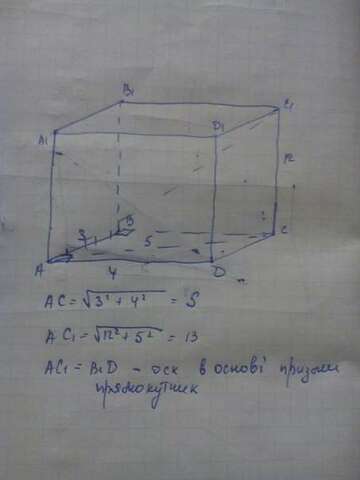 B₁
C₁
A₁
D₁
12
3
B
5
C
A
4
D
AC = √3² + 4² = 5
AC₁ = √12² + 5² = 13
AC₁ = B₁D - оск в основі призми
прямокутник